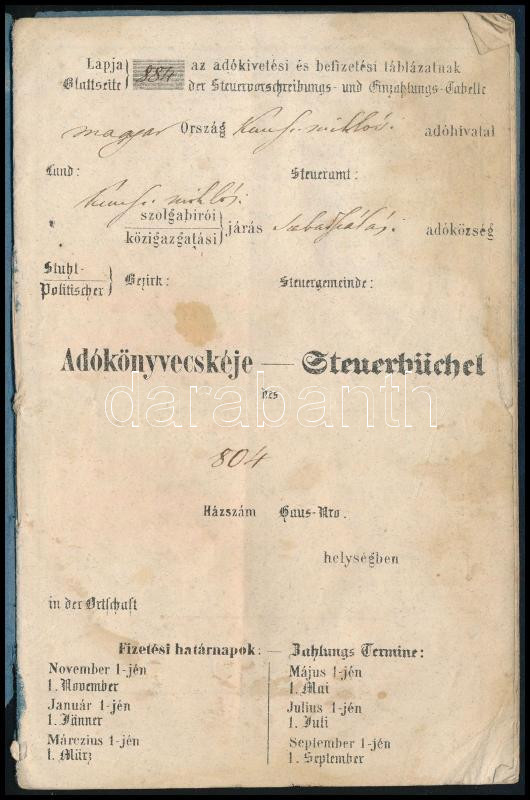 Lapja 884 az adókivetési és befizetési táblázatnak
Blattseite der Steuervorschreibungs- und Einzahlungs-Tabelle
magyar Ország Kun sz. miklósi adóhivatal
Land: Steueramt:
Kun sz. miklósi
szolgabírói
közigazgatási járás Szabadszálás adóközség
Stuhl-
Politischer Bezirk: Steuergemeinde:
Adókönyvecskéje — Steuerbüchel
des
darabanth
804
Házszám Haus-Nro.
helységben
in der Ortschaft
Fizetési határnapok: — Zahlungs Termine:
November 1-jén
1. November
Január 1-jén
1. Jänner
Márczius 1-jén
1. März
Május 1-jén
1. Mai
Julius 1-jén
1. Juli
September 1-jén
1. September